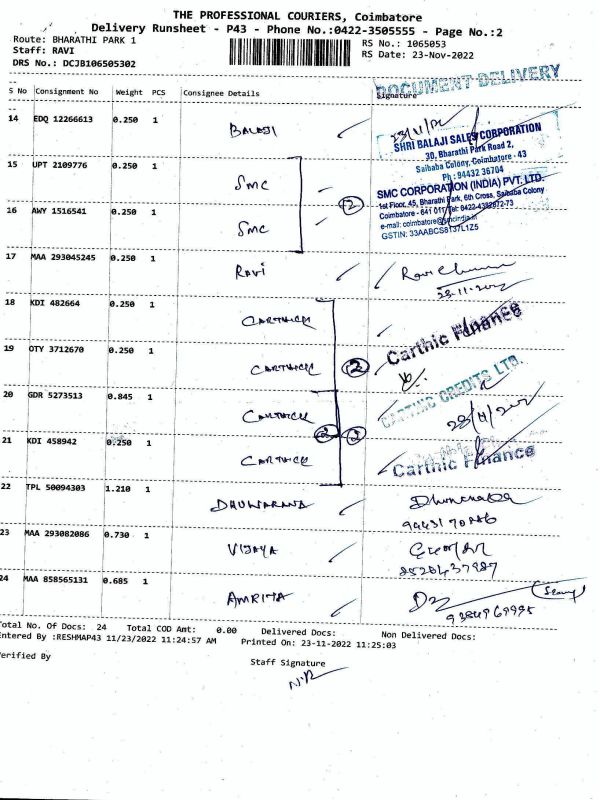 THE PROFESSIONAL COURIERS, Coimbatore
Delivery Runsheet - P43 - Phone No.:0422-3505555 - Page No.:2
Route: BHARATHI PARK 1
RS No.: 1065053
Staff: RAVI
RS Date: 23-Nov-2022
DRS No.: DCJB106505302
S No Consignment No Weight PCS Consignee Details Signature
DOCUMENT DELIVERY
14 EDQ 12266613 0.250 1 BALAJI
SHRI BALAJI SALES CORPORATION
30, Bharathi Park Road 2,
Saibaba Colony, Coimbatore - 43
Ph : 94432 36704
15 UPT 2109776 0.250 1 SMC
SMC CORPORATION (INDIA) PVT. LTD.
1st Floor, 45, Bharathi Park, 6th Cross, Saibaba Colony
Coimbatore - 641 011
e-mail: coimbatore@smcindia.in
GSTIN: 33AABCS8137L1Z5
16 AWY 1516541 0.250 1 SMC
2
17 MAA 293045245 0.250 1 RAVI
18 KDI 482664 0.250 1 CARTHICK
Carthic Finance
19 OTY 3712670 0.250 1 CARTHICK
2
20 GDR 5273513 0.845 1 CARTHICK
CARTHIC CREDITS LTD.
2 2
21 KDI 458942 0.250 1 CARTHICK
Carthic Finance
22 TPL 50094303 1.210 1
23 MAA 293082086 0.730 1 VIJAYA
24 MAA 858565131 0.685 1 AMRITA
Total No. Of Docs: 24 Total COD Amt: 0.00 Delivered Docs: Non Delivered Docs:
Entered By :RESHMAP43 11/23/2022 11:24:57 AM Printed On: 23-11-2022 11:25:03
Verified By
Staff Signature